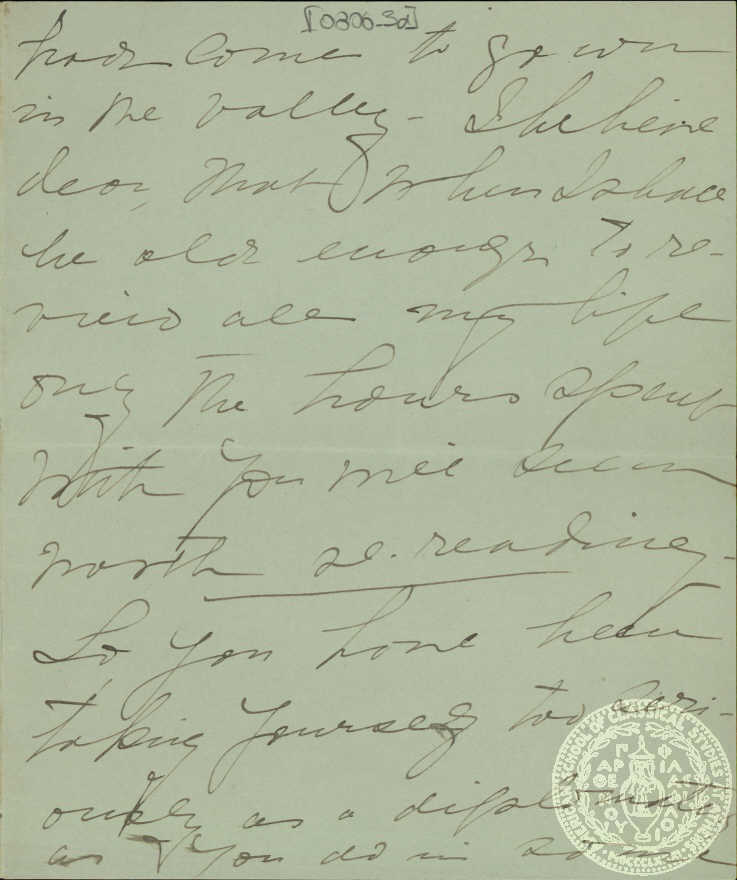 [0306-3a]
had come to go own
in the valley - I believe
dear, that when I shall
be old enough to re-
view all my life
only the hours spent
with you will seem
worth re-reading -
So you have been
taking yourself too seri-
ously as a diplomat,
as you do in some
SCHOOL OF CLASSICAL STUDIES